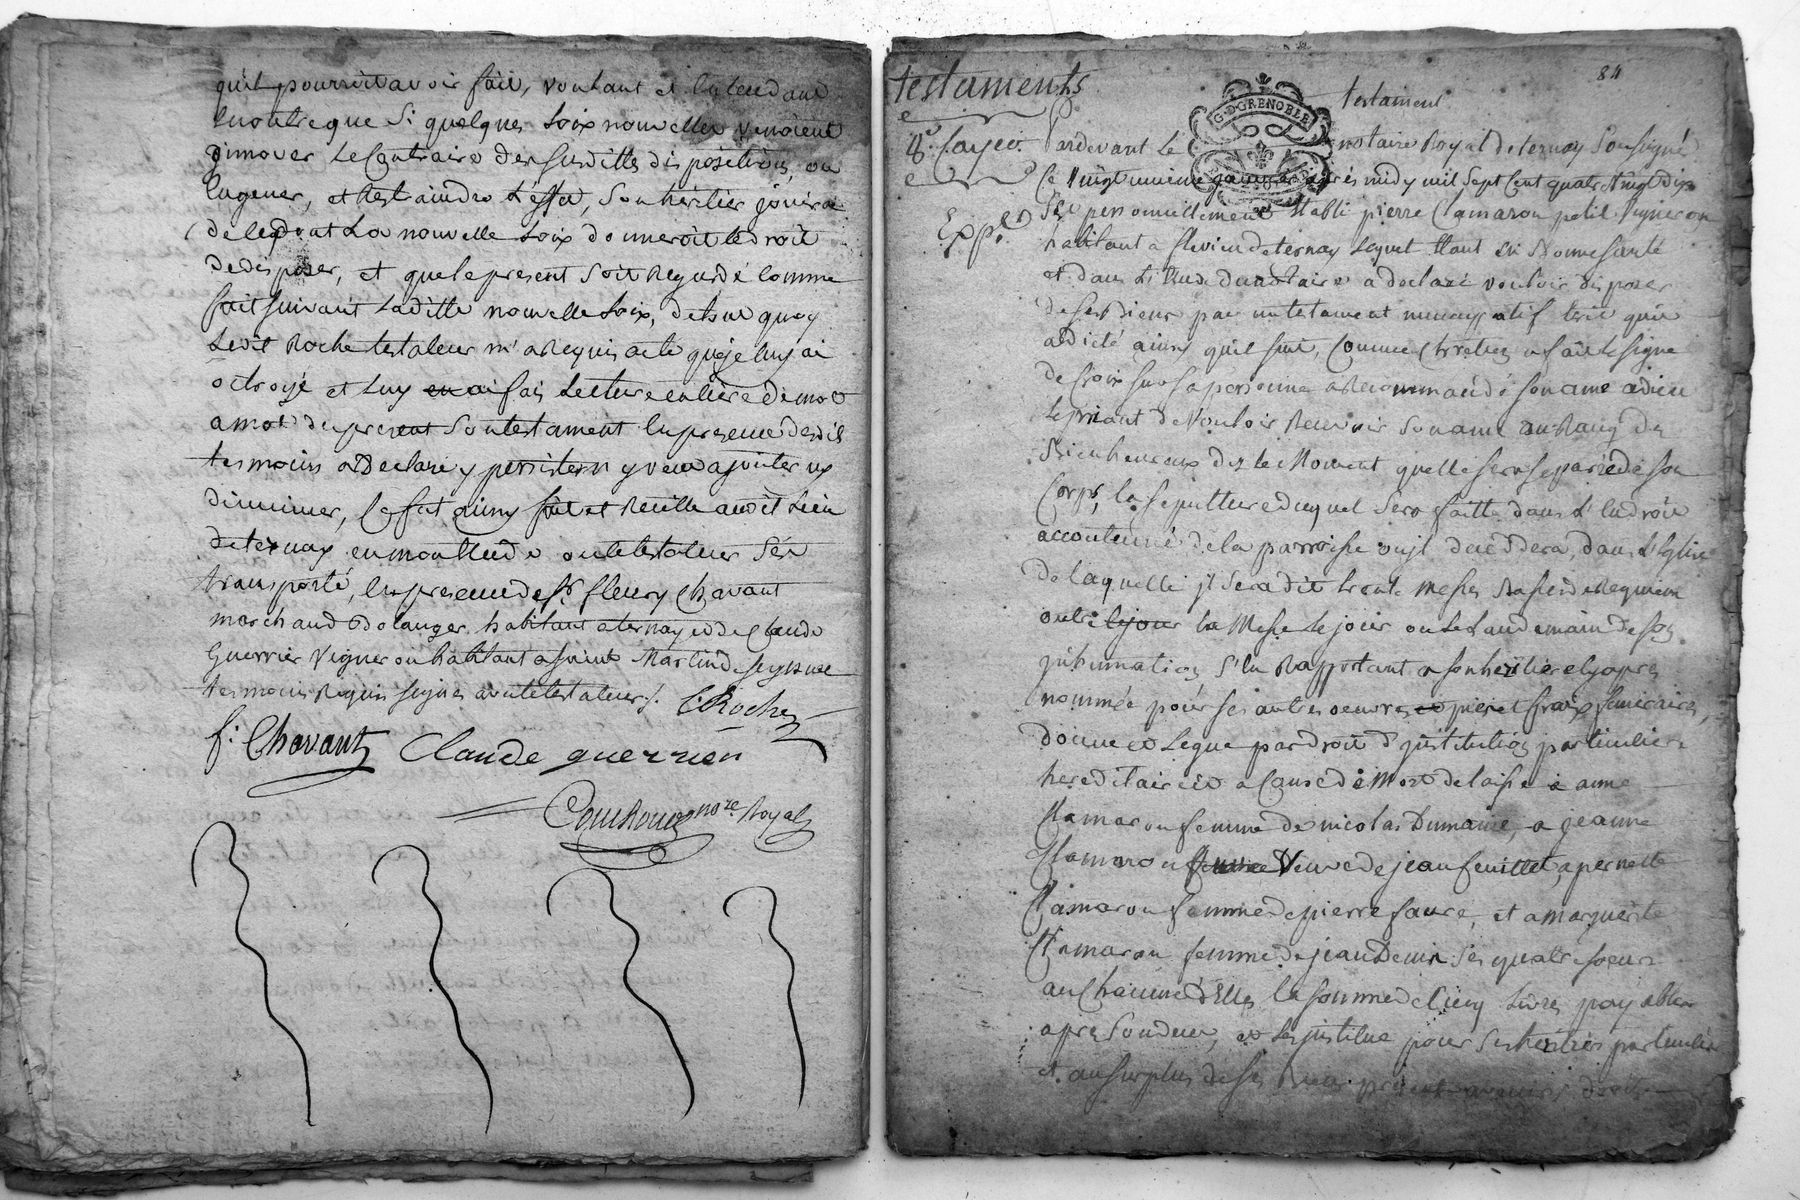 qu'il pourroit avoir fait, voulant et entendant
en outre que si quelques loix nouvelles venoient
innover le contraire des susdittes dispositions, ou
en gener, et restraindre l'effet, son héritier jouira
de ce dont la nouvelle loix donneroit le droit
de disposer, et que le present soit regardé comme
fait suivant laditte nouvelle loix, de tout quoy
ledit Roche testateur m'a requis acte que je luy ai
octroyé et luy en ai fais lecture entière de mot
a mot du present son testament en presence desdits
temoins a declaré y persister n'y veut ajouter ny
diminuer, ce fut ainsy fait et recitté audit lieu
de ternay en mon etude ou le testateur s'est
transporté, en presence de sr. fleury Chavant
marchand Bolanger habitant a ternay et de Claude
Guerrier Vigneron habitant a saint Martin de
temoins requis signes avec le testateur /. C Roche
f: Chavant Claude guerrier
nore. Royal
testaments
84
G. D. GRENOBLE
testament
Pardevant le notaire Royal de ternay soussigné
Ce vingt unième janvier après midy mil sept cent quatre vingt dix
fut personnellement etabli pierre Clamaron petit Vigneron
Exp.é
habitant a flevieu de ternay lequel etant en bonne santé
et dans l'etude du notaire a declaré vouloir disposer
de ses biens par un testament nuncupatif ecrit qu'il
a dicté ainsy qu'il suit, Comme Chretien a fait le signe
de Croix sur sa personne a recommandé son ame a dieu
le priant de vouloir recevoir son ame au Rang des
Bienheureux dez le Moment quelle sera separée de son
Corps, la sepulture duquel sera faitte dans l'endroit
accoutumé de la parroisse ou jl decedera, dans l'Eglise
de laquelle jl sera dit trente messes Basses de Requiem
outre le jour la Messe le jour ou le landemain de son
jnhumation s'en Rapportant a son heritiere cy apres
nommée pour ses autres oeuvres pies et fraix funeraires,
donne et legue par droit d'jnstitution particuliere
hereditaire et a Cause de Mort delaisse a anne
Clamaron femme de nicolas Dumaine, a jeanne
Clamaron femme Veuve de jean feuillet, a pernette
Clamaron femme de pierre faure, et a marguerite
Clamaron femme de jean Denis ses quatre soeurs
a Chacune d'Elles la somme de Cinq livres payables
apres son deces, et les jnstitue pour ses héritiers particuliers
et au surplus de ses Biens presents avenirs droits